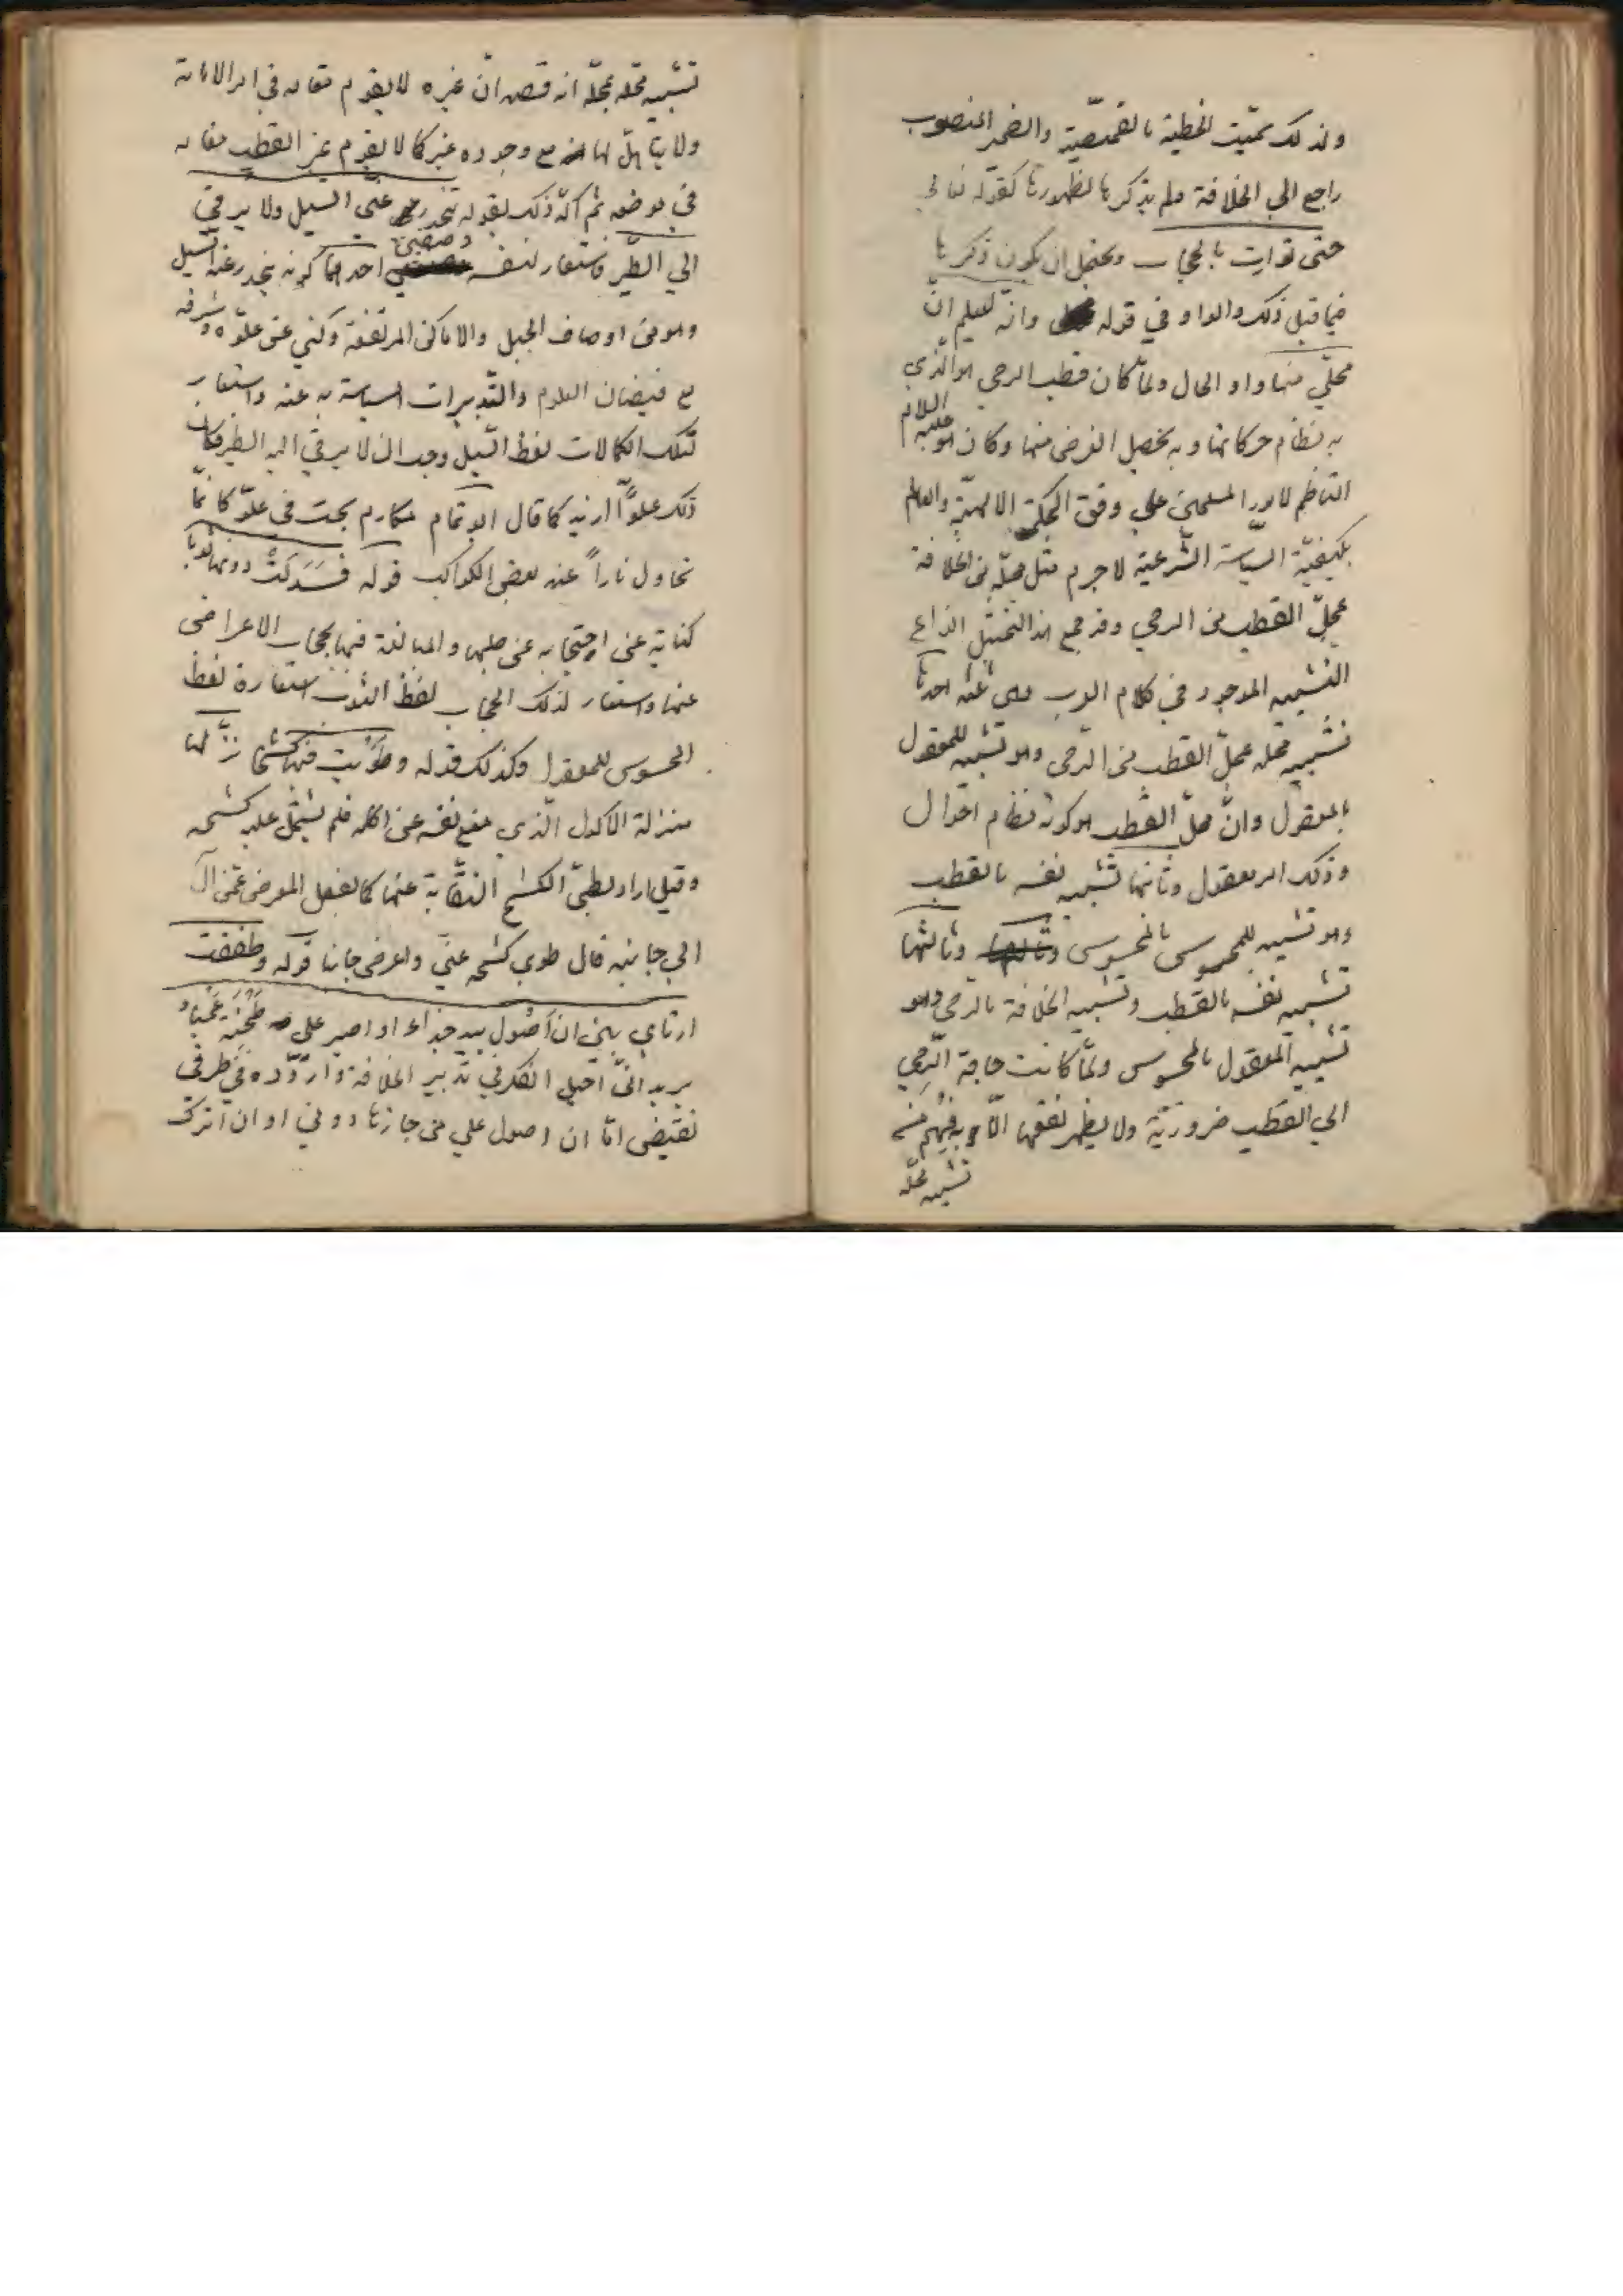 ولذلك سميت الخطبة بالقمصية والضمير المنصوب
راجع الى الخلافة ولم يذكرها لظهورها كقوله تعالى
حتى توارت بالحجاب ويحتمل ان يكون ذكرها
فيما قبل ذلك والواو في قوله وانه ليعلم ان
محلي منها واو الحال ولما كان قطب الرحى هو الذي
به نظام حركاتها وبه يحصل الغرض منها وكان هو عليه السلام
الناظم لامور المسلمين على وفق الحكمة الالهية والعالم
بكيفية السياسة الشرعية لا جرم مثل محله من الخلافة
بمحل القطب من الرحى وقد جمع هذا التمثيل انواع
التشبيه الموجود في كلام العرب وهي ثلثة احدها
تشبيه محله بمحل القطب من الرحى وهو تشبيه للمعقول
بالمعقول وان محل القطب هو كونه نظام احوال
وذلك امر معقول وثانيها تشبيه نفسه بالقطب
وهو تشبيه للمحسوس بالمحسوس وثالثها
تشبيه نفسه بالقطب وتشبيه الخلافة بالرحى وهو
تشبيه المعقول بالمحسوس ولما كانت حاجة الرحى
الى القطب ضرورية ولا يظهر نفعها الا به فيهم من
تشبيه محله
تشبيه محله بمحله انه قصد ان غيره لا يقوم مقامه في امر الامامة
ولا يتاهل لها مع وجوده غيره كما لا يقوم غير القطب مقامه
في موضعه ثم اكد ذلك بقوله ينحدر عني السيل ولا يرقى
الى الطير فاستعار لنفسه وصفين احدهما كونه ينحدر عنه السيل
وهو من اوصاف الجبل والاماكن المرتفعة وكني عن علوه وشرفه
مع فيضان العلوم والتدبيرات السياسية عنه واستعار
لتلك الكمالات لفظ السيل وجد انه لا يرقى اليه الطير فكان
ذلك علوا ازيد كما قال ابو تمام مكارم لجت في علو كانما
تحاول ثارا عند بعض الكواكب قوله فسدلت دونها ثوبا
كناية عن احتجابه عن طلبها والمبالغة فيها بحجاب الاعراض
عنها واستعار لذلك الحجاب لفظ الثوب استعارة لفظ
المحسوس للمعقول وكذلك قوله وطويت عنها كشحا نزلها
منزلة الماكول الذي منع نفسه عن اكله فلم يشتمل عليه كشحه
وقيل اراد بطي الكشح التفاته عنها كما يفعل المعرض عمن
الى جانبه قال طوي كشحه عني واعرض جانبا قوله وطفقت
ارتاي بين ان اصول بيد جذاء او اصبر على طخية عمياء
يريد اني اجيل الفكر في تدبير الخلافة واردده في طرفي
نقيض اما ان اصول على من حازها دوني او ان اترك